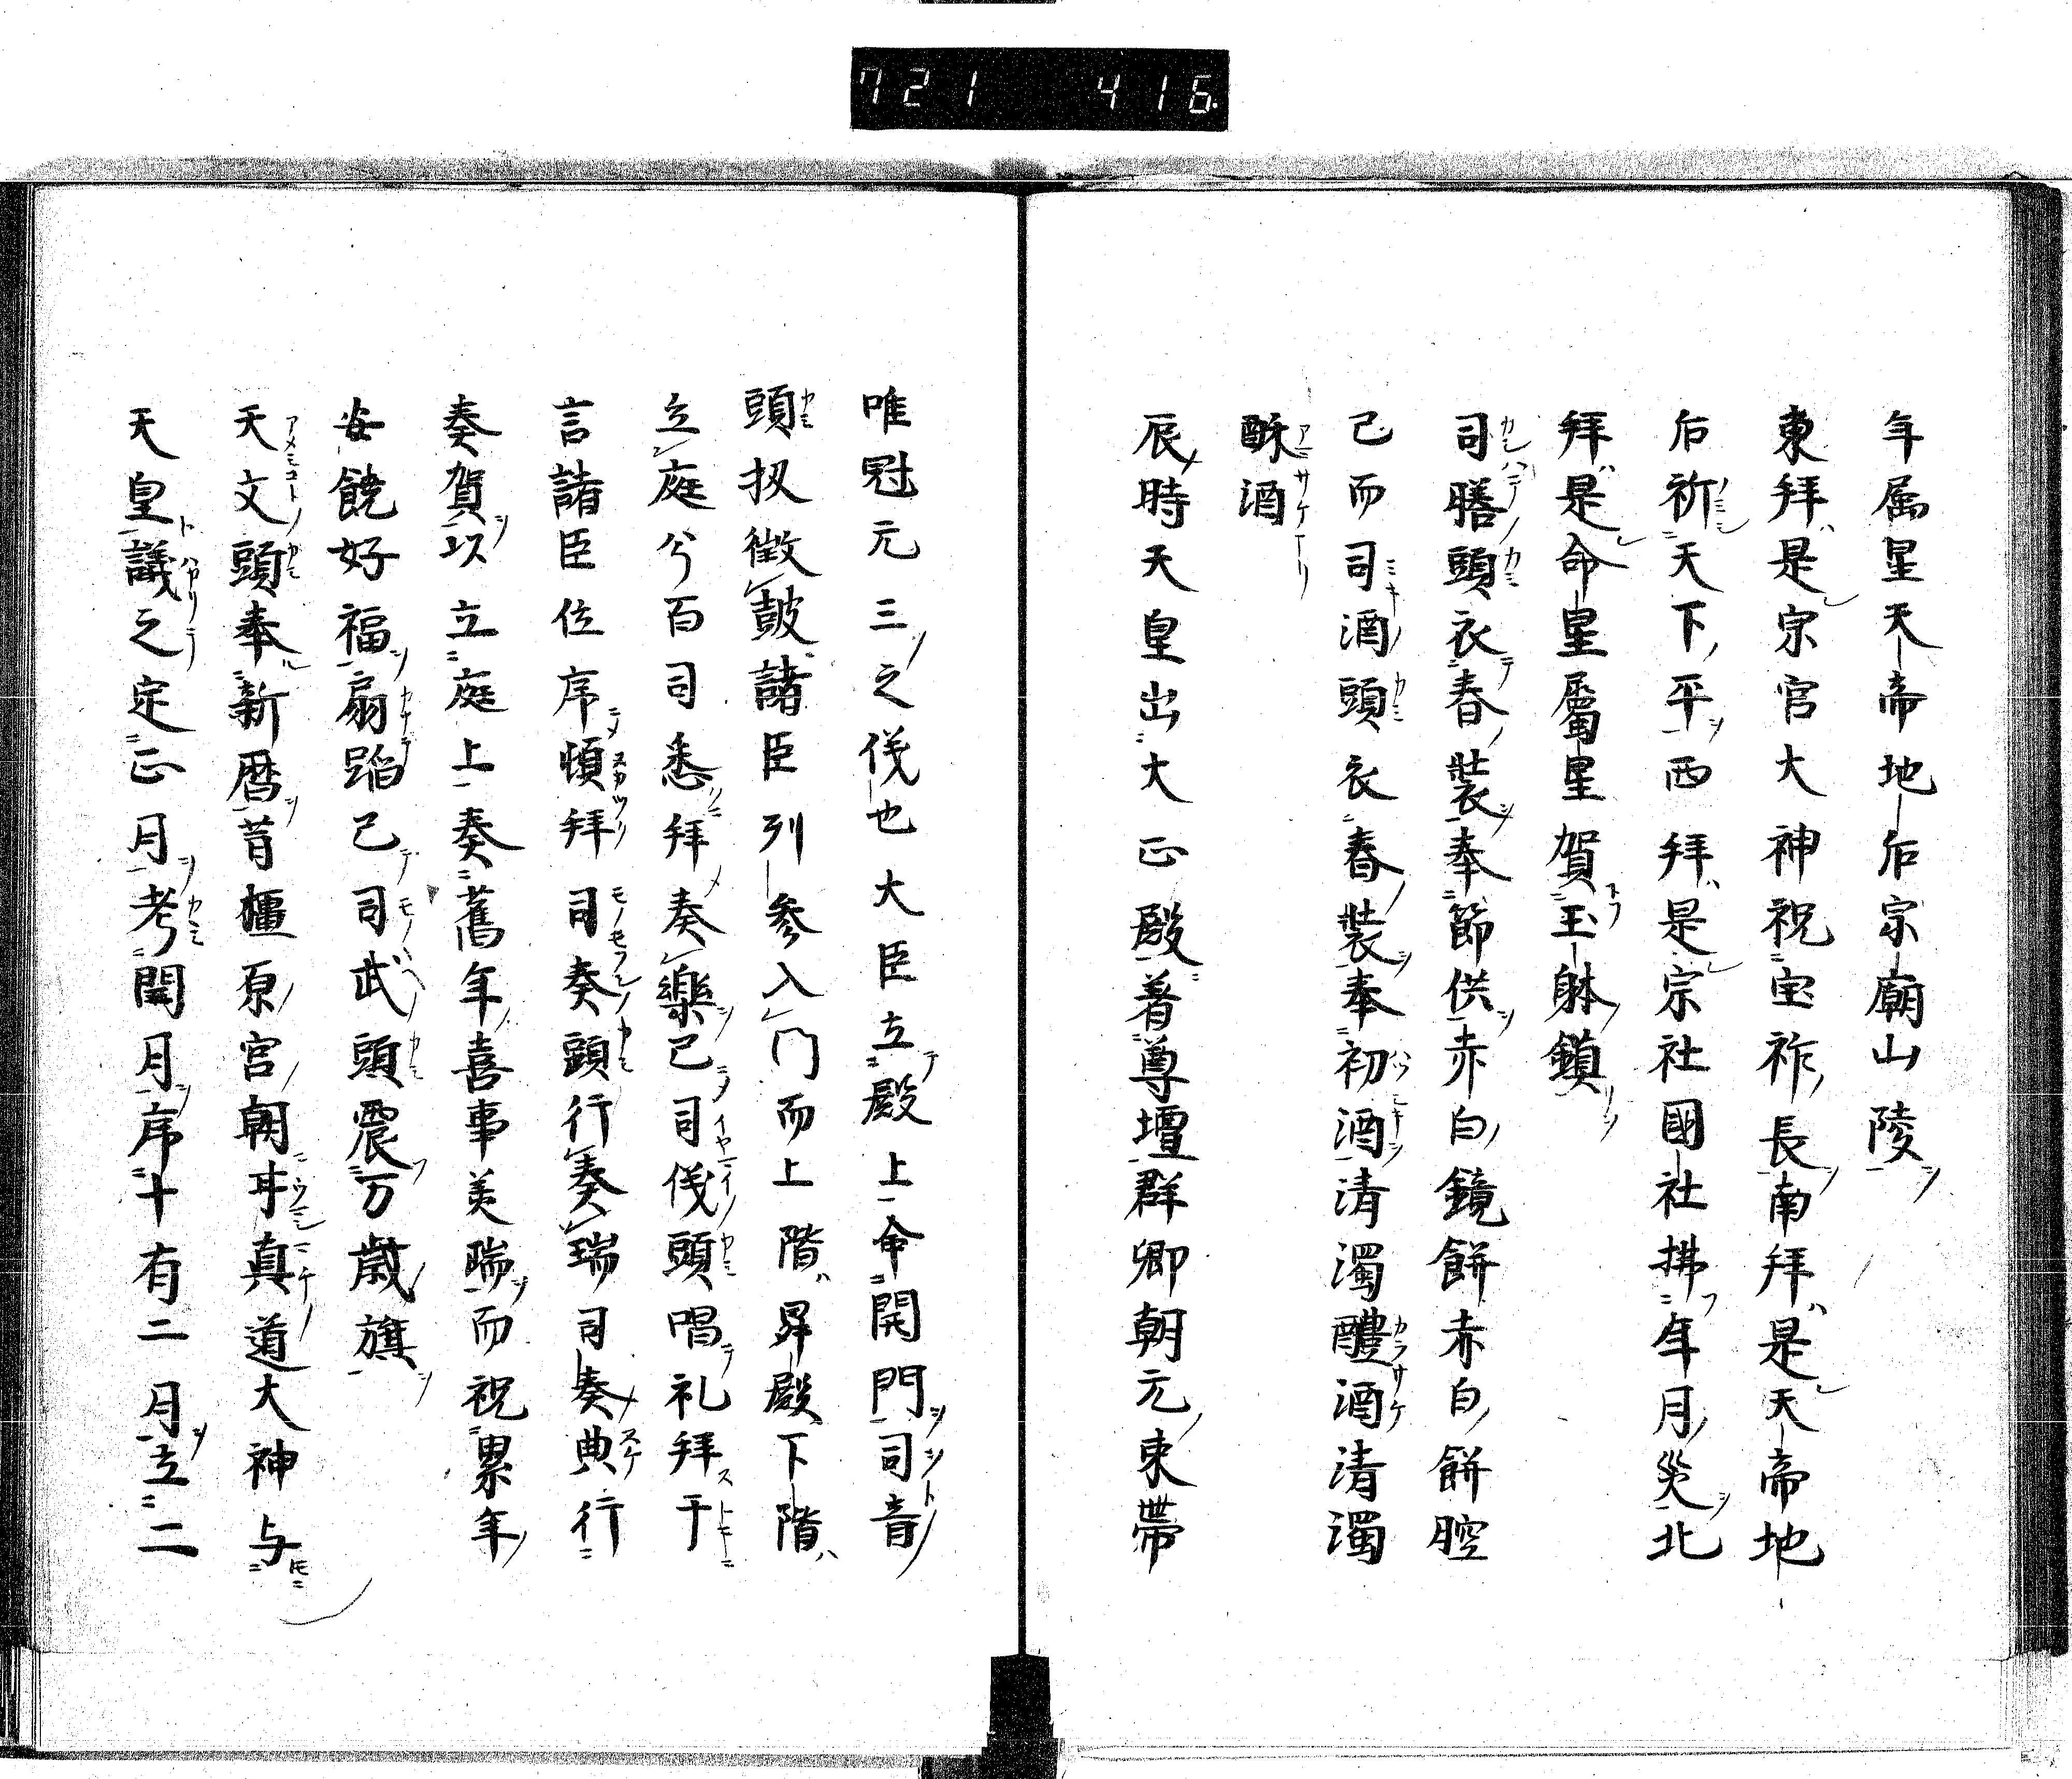 721 416
年属星天帝地后宗廟山陵
東拜是宗宮大神祝宝祚長南拜是天帝地
后祈天下平西拜是宗社國社拂年月災北
拜是命皇屬星賀玉躰鎮
司膳頭衣春裝奉節供赤白鏡餅赤白餅腔
已而司酒頭衣春裝奉初酒清濁醴酒清濁
酥酒
辰時天皇出大正殿着尊壇群卿朝元束帶
唯冠元三之伐也大臣立殿上命開門司音
頭扠徴鼓諸臣列參入門而上階昇殿下階
立庭兮百司悉拜奏樂已司伐頭唱礼拜于
言諸臣位序頓拜司奏頭行奏瑞司奏典行
奏賀以立庭上奏舊年喜事美瑞而祝累年
安饒好福扇蹈已司武頭震万歳旗
天文頭奉新曆昔橿原宮朝耳真道大神与
天皇議之定正月考閏月序十有二月立二